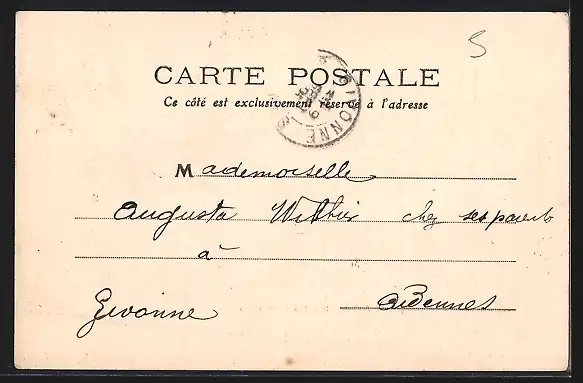 5
CARTE POSTALE
Ce côté est exclusivement réservé à l'adresse
GIVONNE
Mademoiselle
Augusta chez ses parents
à
Givonne Ardennes